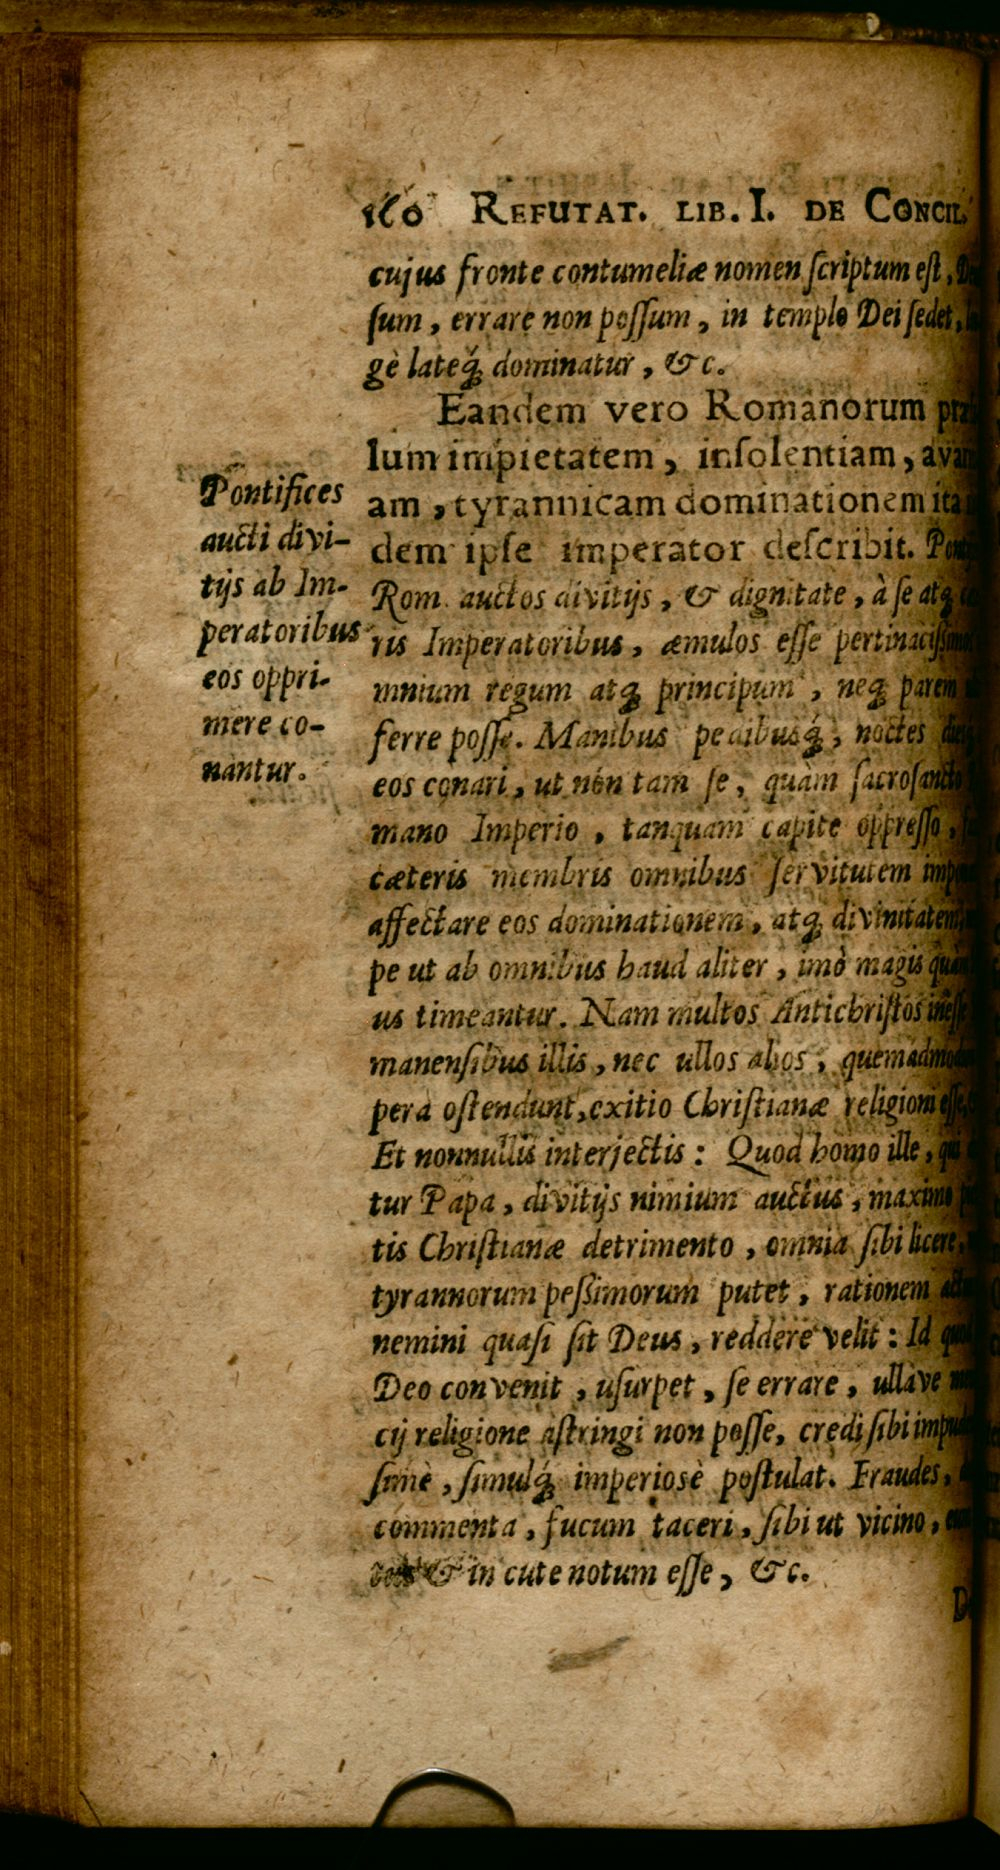 160 REFUTAT. LIB. I. DE CONCIL.
cujus fronte contumeliæ nomen ſcriptum eſt,
ſum, errare non poſſum, in templo Dei ſedet,
gè lateq́; dominatur, &c.
Eandem vero Romanorum
lum impietatem, inſolentiam,
am, tyrannicam dominationem ita
dem ipſe imperator deſcribit.
Rom. auctos divitijs, & dignitate, à ſe atq;
ris Imperatoribus, æmulos eſſe
mnium regum atq; principum, neq; parem
ferre poſſe. Manibus pedibusq́;, noctes
eos conari, ut non tam ſe, quàm ſacroſancto
mano Imperio, tanquam capite oppreſſo,
cæteris membris omnibus ſervitutem
affectare eos dominationem, atq; divinitatem,
pe ut ab omnibus haud aliter, imò magis quàm
us timeantur. Nam multos Antichriſtos ineſſe
manenſibus illis, nec ullos alios,
pera oſtendunt, exitio Chriſtianæ religioni eſſe,
Et nonnullis interjectis: Quod homo ille, qui
tur Papa, divitijs nimium auctus, maximo
tis Chriſtianæ detrimento, omnia ſibi licere,
tyrannorum peſſimorum putet, rationem
nemini quaſi ſit Deus, reddere velit: Id
Deo convenit, uſurpet, ſe errare, ullave
cij religione aſtringi non poſſe, credi ſibi
ſimè, ſimulq́; imperiosè poſtulat. Fraudes,
commenta, fucum taceri, ſibi ut vicino,
& in cute notum eſſe, &c.
Pontifices
aucti divi-
tijs ab Im-
peratoribus
eos oppri-
mere co-
nantur.